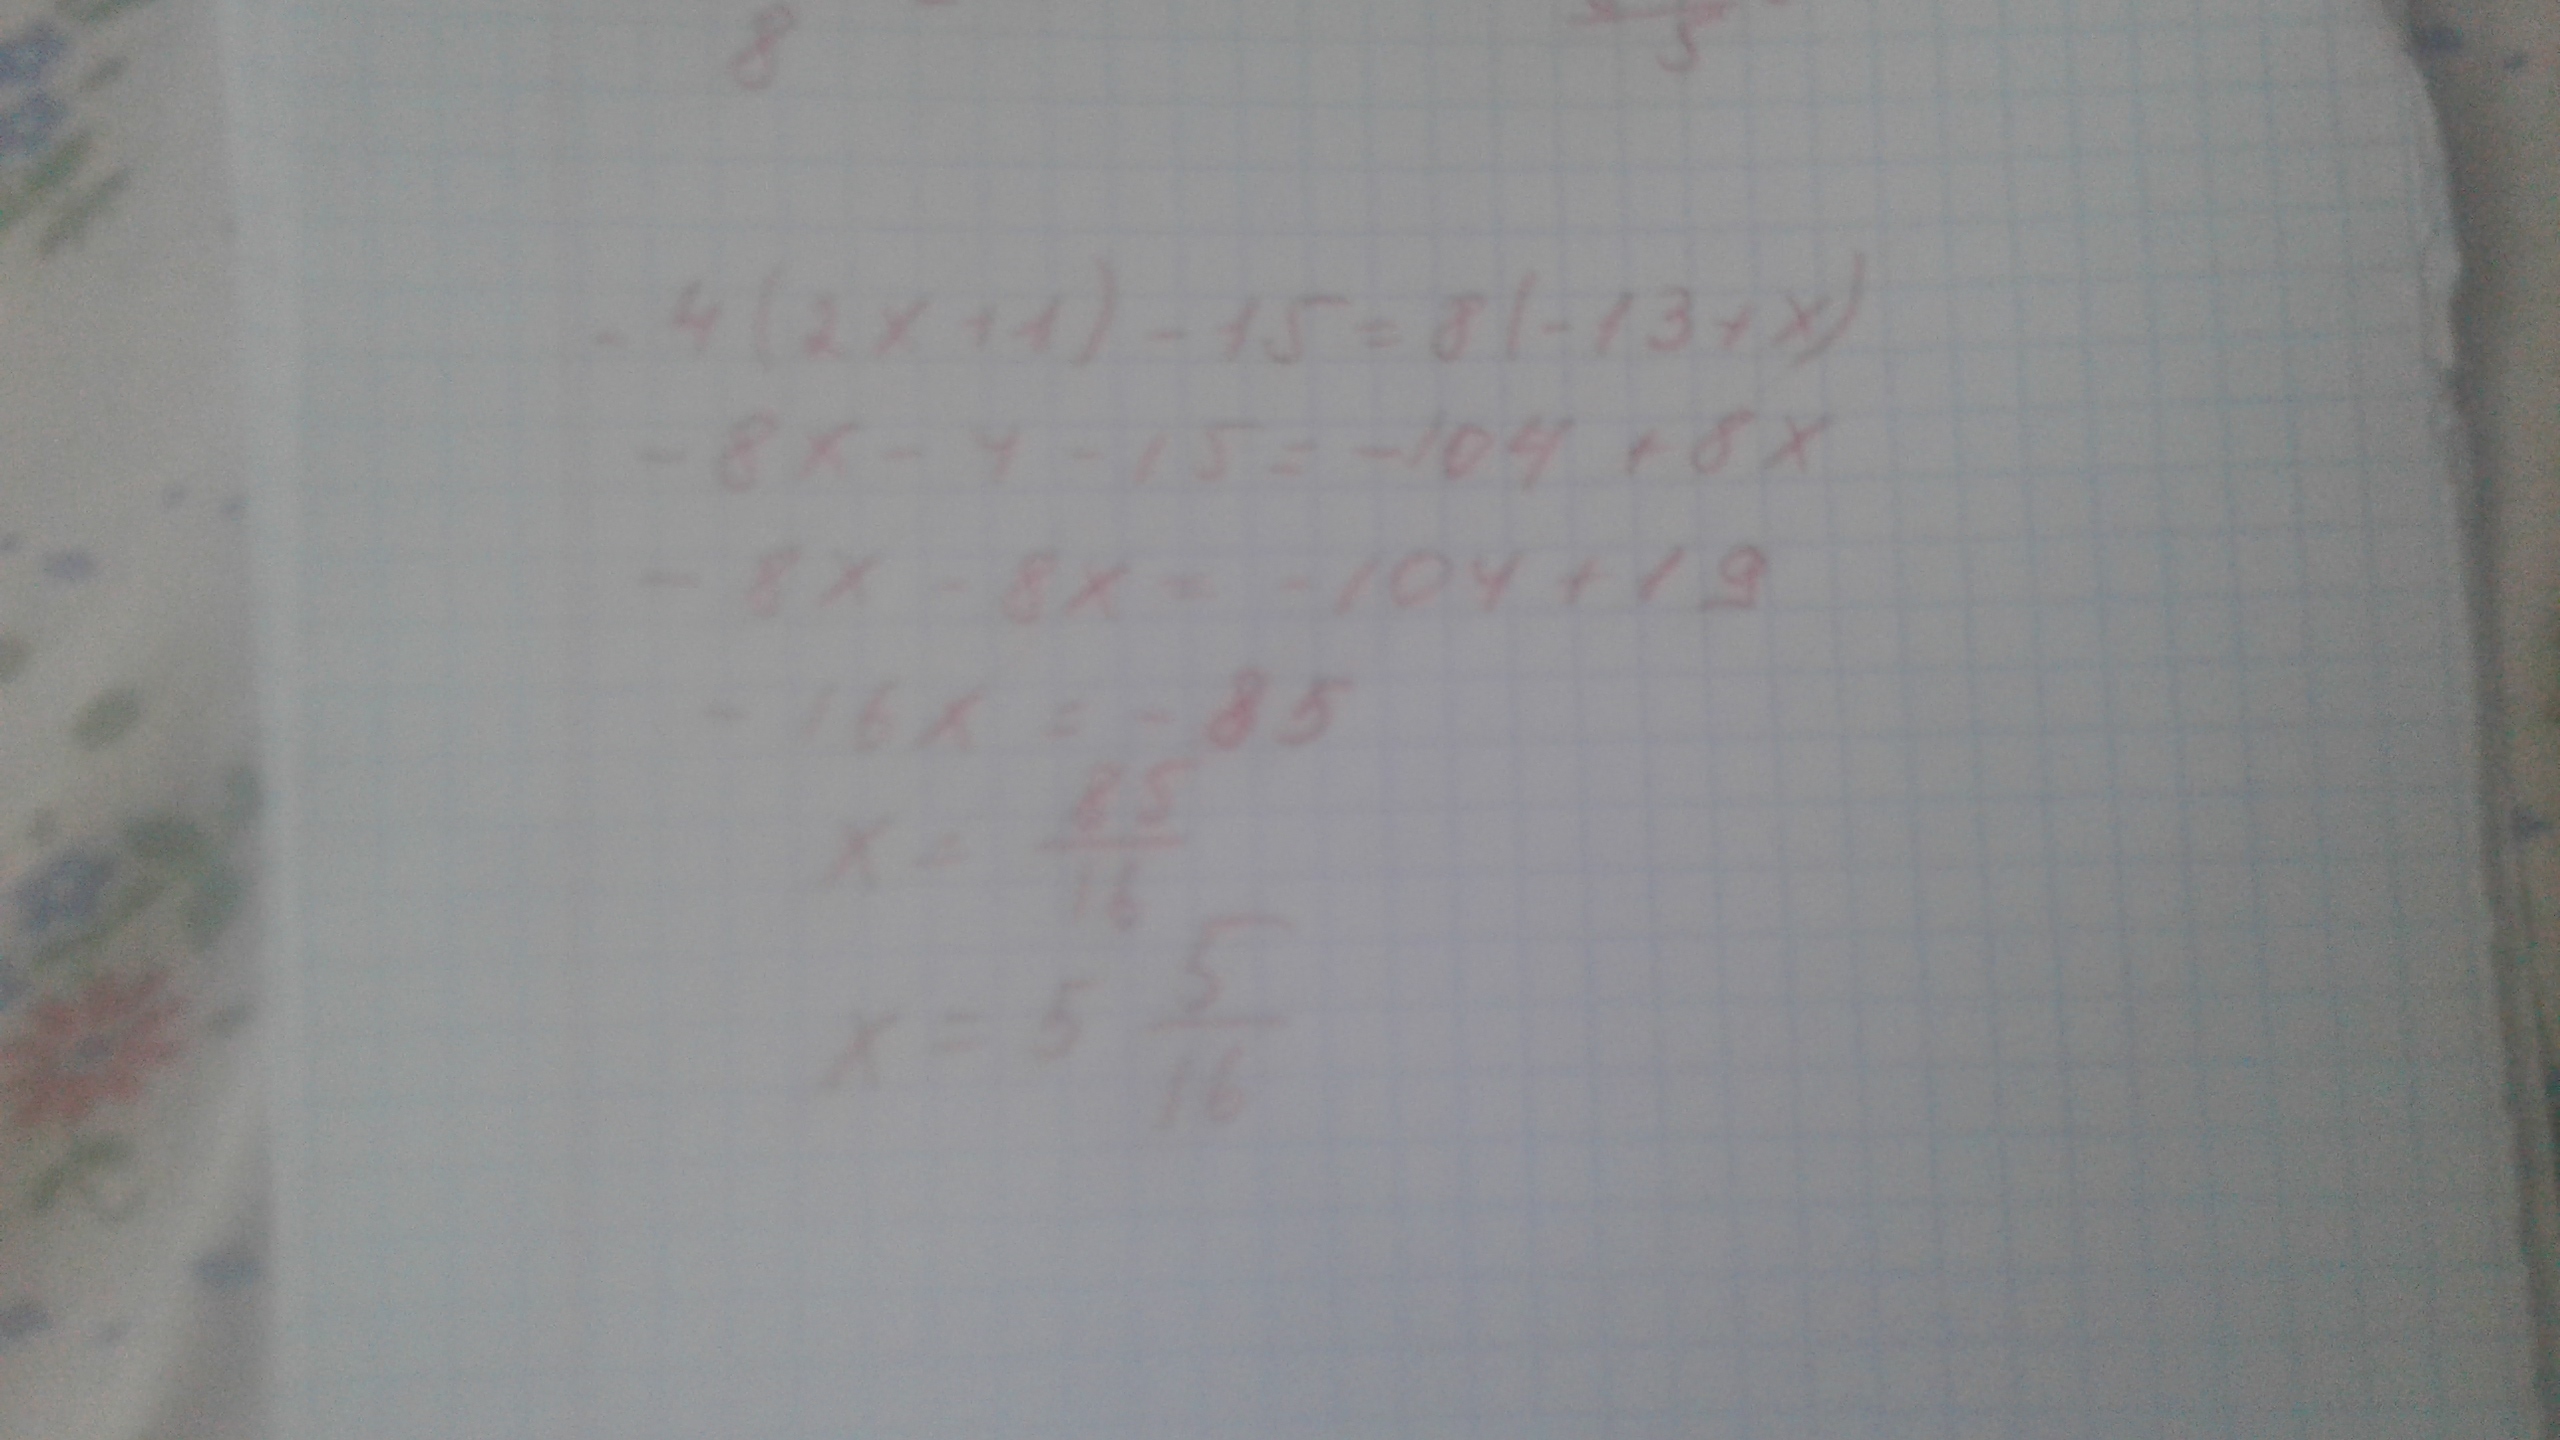 8
5
- 4(2x+1) - 15 = 8(-13+x)
- 8x - 4 - 15 = -104 + 8x
- 8x - 8x = -104 + 19
- 16x = - 85
x = 85/16
x = 5 5/16